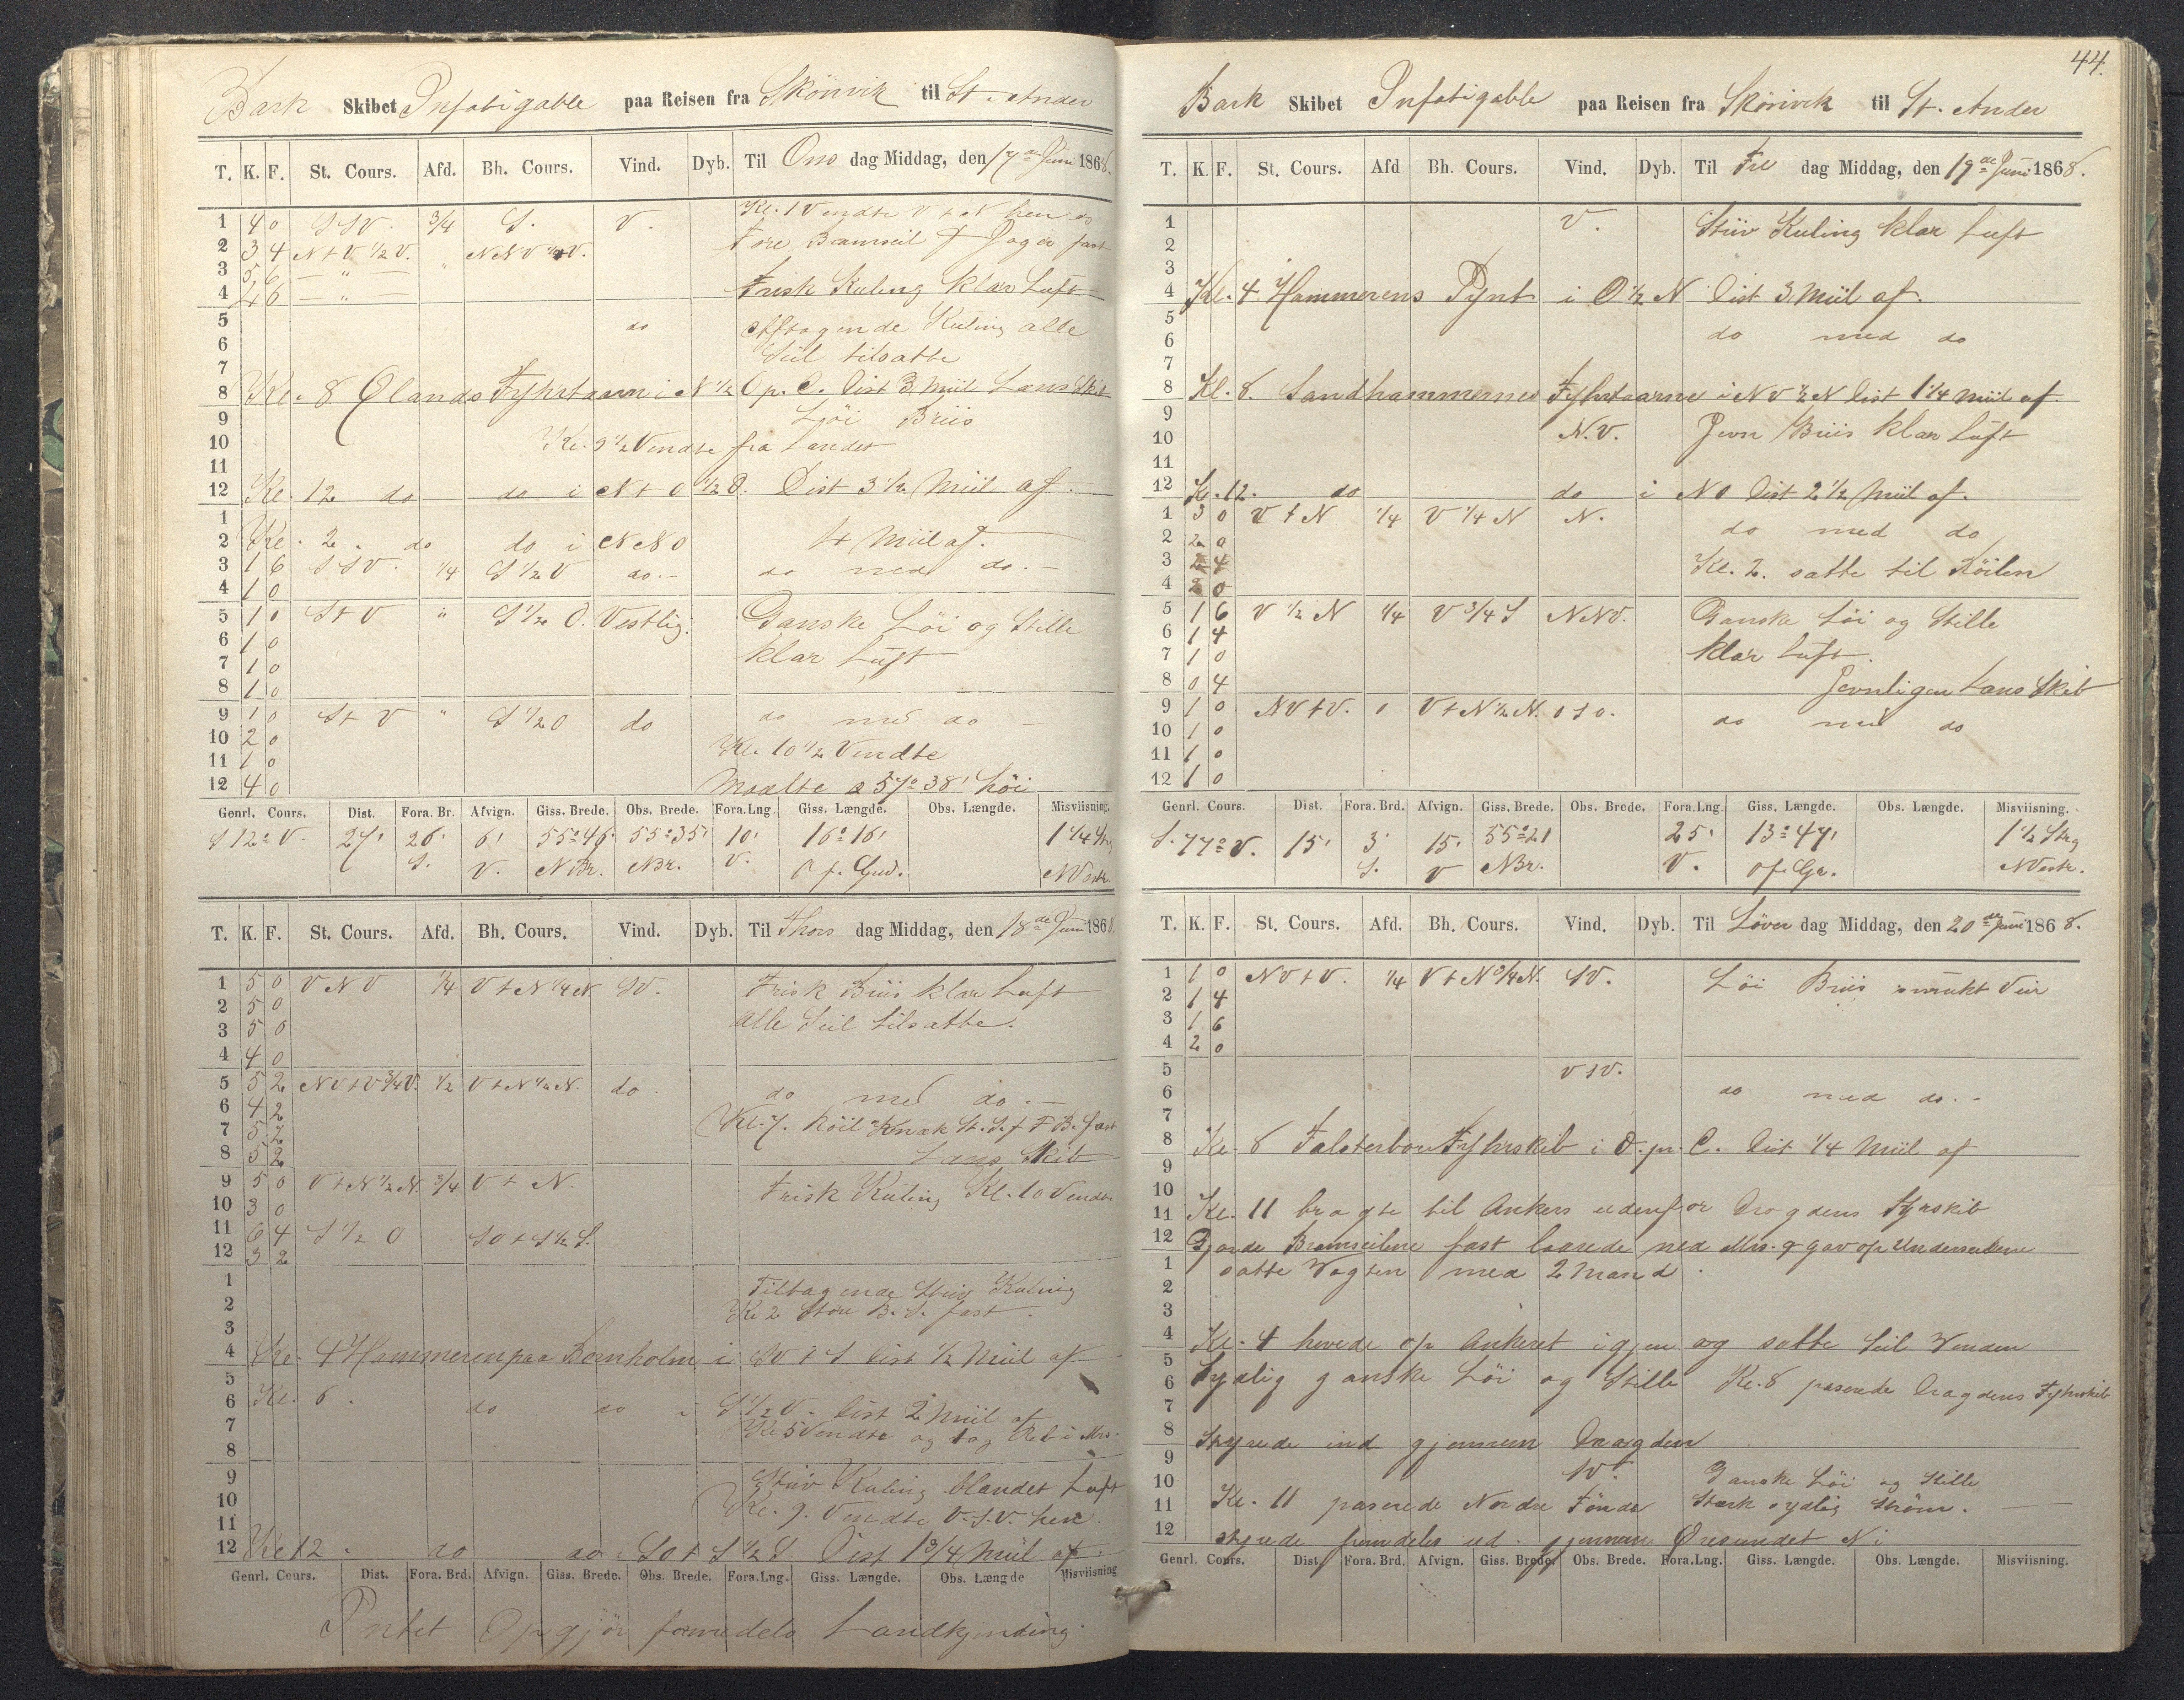 Bark Skibet Infatigable paa Reisen fra Skönvik til St. Ander
T. K. F. St. Cours. Afd. Bh. Cours. Vind. Dyb. Til Ons dag Middag, den 17de Juni 1868.
1 4 0 SSV. 3/4 S. V. Kl. 1 Vendte V t N hen
2 3 4 N t V 1/2 V. " NNV 1/4 V. Fore Bramseil & Jager fast
3 5 6 — " —
4 4 6 — " — Frisk Kuling klar Luft
5 do Aftagende Kuling alle
6 Seil tilsatte
7
8 Kl. 8 Ølands Fyhrtaarn i N 1/2 O p. C. Dist 3 Miil Lans Skib
9 Löi Briis
10 Kl. 9 1/2 Vendte fra Landet
11
12 Kl. 12 do do i N t O 1/2 O. Dist 3 1/2 Miil af.
1
2 Kl. 2. do do i NNO 4 Miil af.
3 1 6 SSV. 1/4 S 1/2 V do.- do med do.-
4 1 0
5 1 0 S t V " S 1/2 O. Vestlig. Ganske Löi og Stille
6 1 0
7 1 0 klar Luft
8 1 0
9 1 0 S t V " S 1/2 O do do med do -
10 2 0 Kl. 10 1/2 Vendte
11 1 0
12 4 0 Maalte a 57° 38' höi
Genrl. Cours. Dist. Fora. Br. Afvign. Giss. Brede. Obs. Brede. Fora.Lng. Giss. Længde. Obs. Længde. Misviisning.
S 12° V. 27' 26' 6' 55° 46' 55° 35' 10' 16° 16' 1 1/4 Str
S. V. NBr. NBr. V. O f. Grd. NVestr.
T. K. F. St. Cours. Afd. Bh. Cours. Vind. Dyb. Til Thors dag Middag, den 18de Juni 1868.
1 5 0 VNV 1/4 V t N 1/4 N. SV. Frisk Briis klar Luft
2 5 0
3 5 0 alle Seil tilsatte.
4 4 0
5 5 2 NV t V 3/4 V. 1/2 V t N 1/2 N. do. do med do.-
6 4 2
7 5 2 Kl. 7. Röil Knæk St. S. & F B. fast
8 5 2 Lans Skib
9 5 0 V t N 1/2 N. 3/4 V t N. Frisk Kuling Kl. 10 Vendte
10 3 0
11 6 4 S 1/2 O SO t S 1/2 S.
12 3 2
1 Tiltagende Stiiv Kuling
2 Kl 2 Store B. S. fast.
3
4 Kl. 4 Hammeren paa Bornholm i SV t S Dist 1/2 Miil af
5
6 Kl. 6. do do i S 1/2 V. Dist 2 Miil af
7 Kl 5 Vendte og tog Reb i Mrs.
8
9 Stiiv Kuling blandet Luft
10 Kl. 9. Vendte V.S.V. hen.
11
12 Kl 12. do do. SO t S 1/2 S Dist 1 3/4 Miil af.
Genrl. Cours. Dist. Fora. Brd. Afvign. Giss. Brede. Obs. Brede. Fora.Lng. Giss. Længde. Obs. Længde Misviisning
Intet Opgjör formedels Landkjending.
44.
Bark Skibet Infatigable paa Reisen fra Skönvik til St. Ander
T. K. F. St. Cours. Afd Bh. Cours. Vind. Dyb. Til Fre dag Middag, den 19de Juni 1868.
1 V. Stiiv Kuling klar Luft
2
3
4 Kl. 4. Hammerens Pynt i O 1/2 N Dist 3. Miil af.
5
6 do med do
7
8 Kl. 8. Sandhammernes Fyhrtaarne i NV 1/2 N Dist 1 1/4 Miil af.
9
10 N.V. Jevn Briis klar Luft
11
12 Kl. 12. do do i NO Dist 2 1/2 Miil af.
1 3 0 V t N 1/4 V 1/4 N N.
2 2 0 do med do
3 2 4 Kl. 2. satte til Röilen
4 2 0
5 1 6 V 1/2 N 1/4 V 3/4 S NNV. Ganske Löi og Stille
6 1 4
7 1 0 klar Luft.
8 0 4 Jevnligen Lans Skib
9 1 0 NV t V. 0 V t N 1/2 N. OSO.
10 1 0 do med do
11 1 0
12 1 0
Genrl. Cours. Dist. Fora. Brd. Afvign. Giss. Brede. Obs. Brede. Fora.Lng. Giss. Længde. Obs. Længde. Misviisning.
S. 77° V. 15' 3' 15' 55° 21 25' 13° 47' 1 1/2 Strg
S. V NBr. V. O f. Gr. NVestr.
T. K. F. St. Cours. Afd. Bh. Cours. Vind. Dyb. Til Löver dag Middag, den 20de Juni 1868.
1 1 0 NV t V. 1/4 V t N 3/4 N. SV. Löi Briis smukt Veir
2 1 4
3 1 6
4 2 0
5 VSV.
6 do med do.-
7
8 Kl. 8 Falsterboe Fyhrskib i O. p. C. Dist 1/4 Miil af
9
10
11 Kl. 11 bragte til Ankers udenfor Drogdens Fyrskib
12 Gjorde Bramseilene fast laarede ned Mrs. & gav op Underseilene
1 satte Vagten med 2 Mand.
2
3
4 Kl. 4 hevede op Ankeret igjen og satte Seil Vinden
5
6 Sydlig ganske Löi og Stille Kl. 8 paserede Drogdens Fyhrskib
7
8 Styrede ind gjennem Drogden
9
10 SV. Ganske Löi og Stille
11 Kl. 11 paserede Nordre Tönde Stærk sydlig Ström.
12 styrede fremdeles ud. gjennem Öresundet N i
Genrl. Cours. Dist. Fora. Brd. Afvign. Giss. Brede. Obs. Brede. Fora.Lng. Giss. Længde. Obs. Længde. Misviisning.